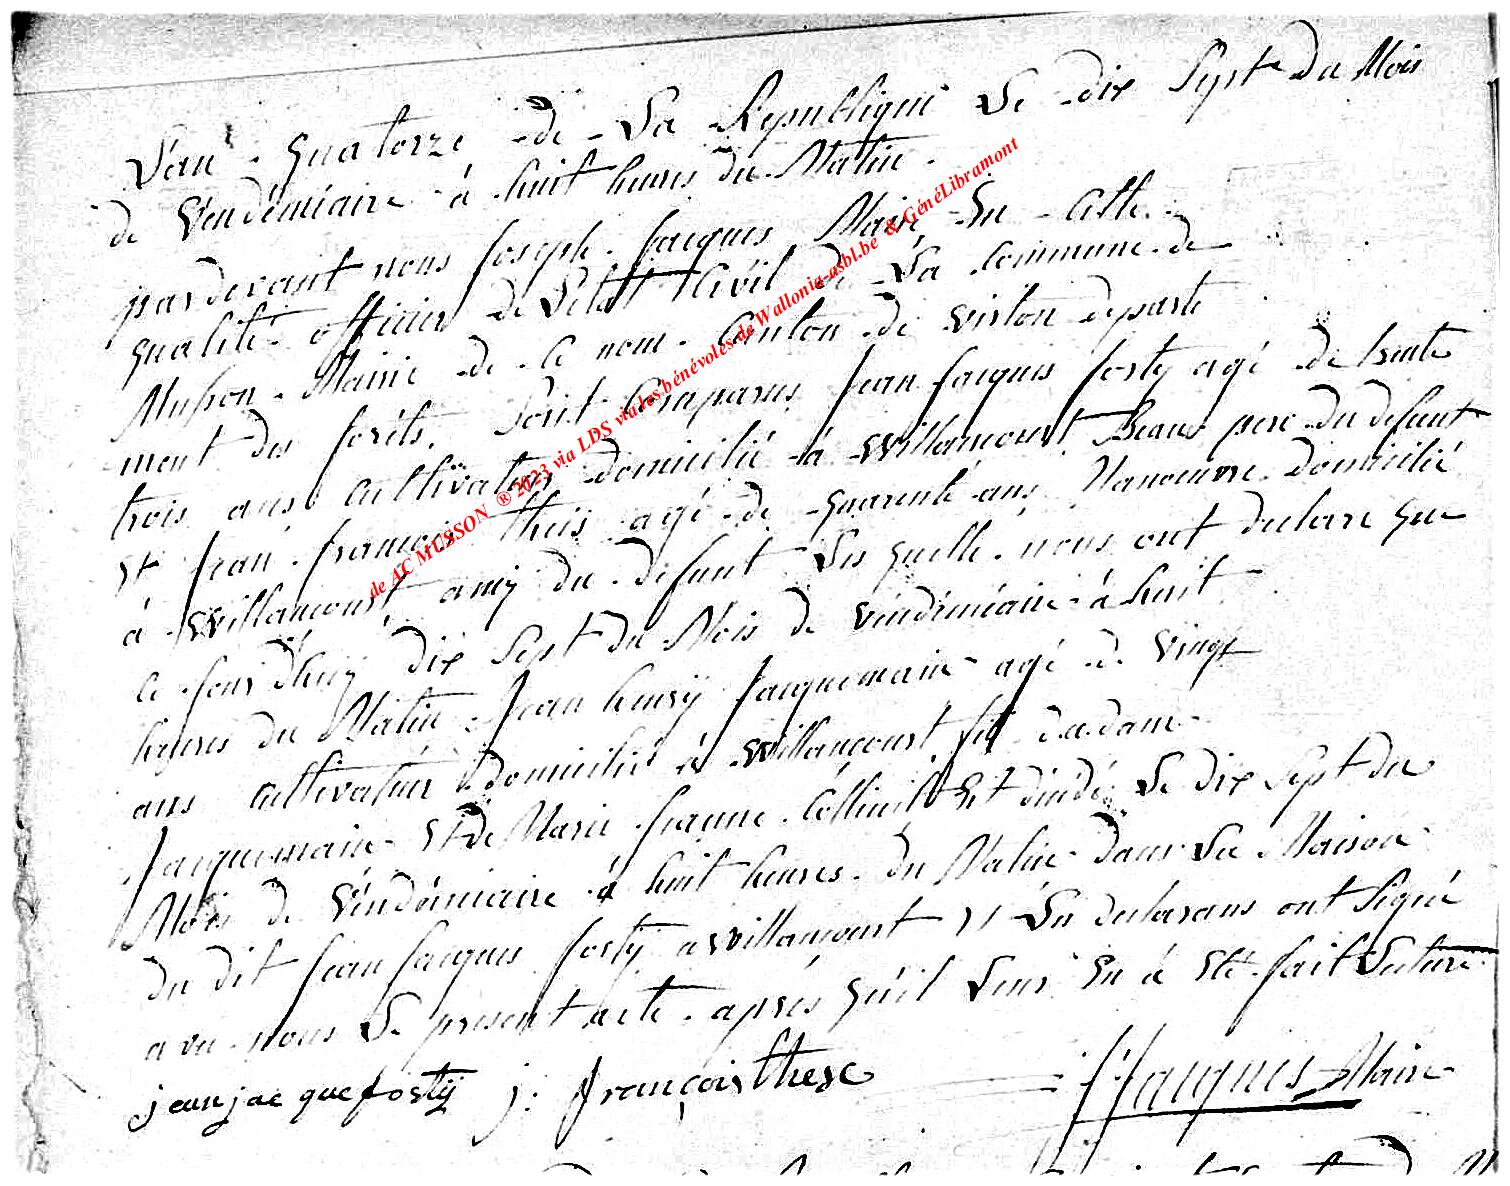 L'an quatorze de La Republique Le dix Sept du Mois
de Vendémiaire à huit heures du Matin.
pardevant nous Joseph Jacques Maire En cette
qualité officier de L'etat Civil de La commune de
Musson Mairie de ce nom Canton de virton departe
ment des forêts. sont Comparus Jean Jacques forty agé de trente
trois ans cultivateur domicilié à Willancourt Beau pere du defunt
et Jean françois agé de quarente ans Manoeuvre domicilié
à Willancourt amy du defunt Les quelle nous ont declare que
ce jourd'huy dix Sept du Mois de Vendémiaire à huit
heures du Matin Jean henry Jacquemain agé de vingt
ans cultivateur domicilié à Willancourt fils d'adam
Jacquemain Et de Marie Jeanne Est décédé Le dix Sept du
Mois de Vendémiaire à huit heures du Matin dans La Maison
du dit Jean Jacques forty a Willancourt Et Les declarans ont Signé
avec nous Le present acte après qu'il Leur En à eté fait Lecture
jean jacque forty j: françois these J Jacques Maire
de AC MUSSON ® 2023 via LDS via les bénévoles de Wallonia-asbl.be & GénéLibramont